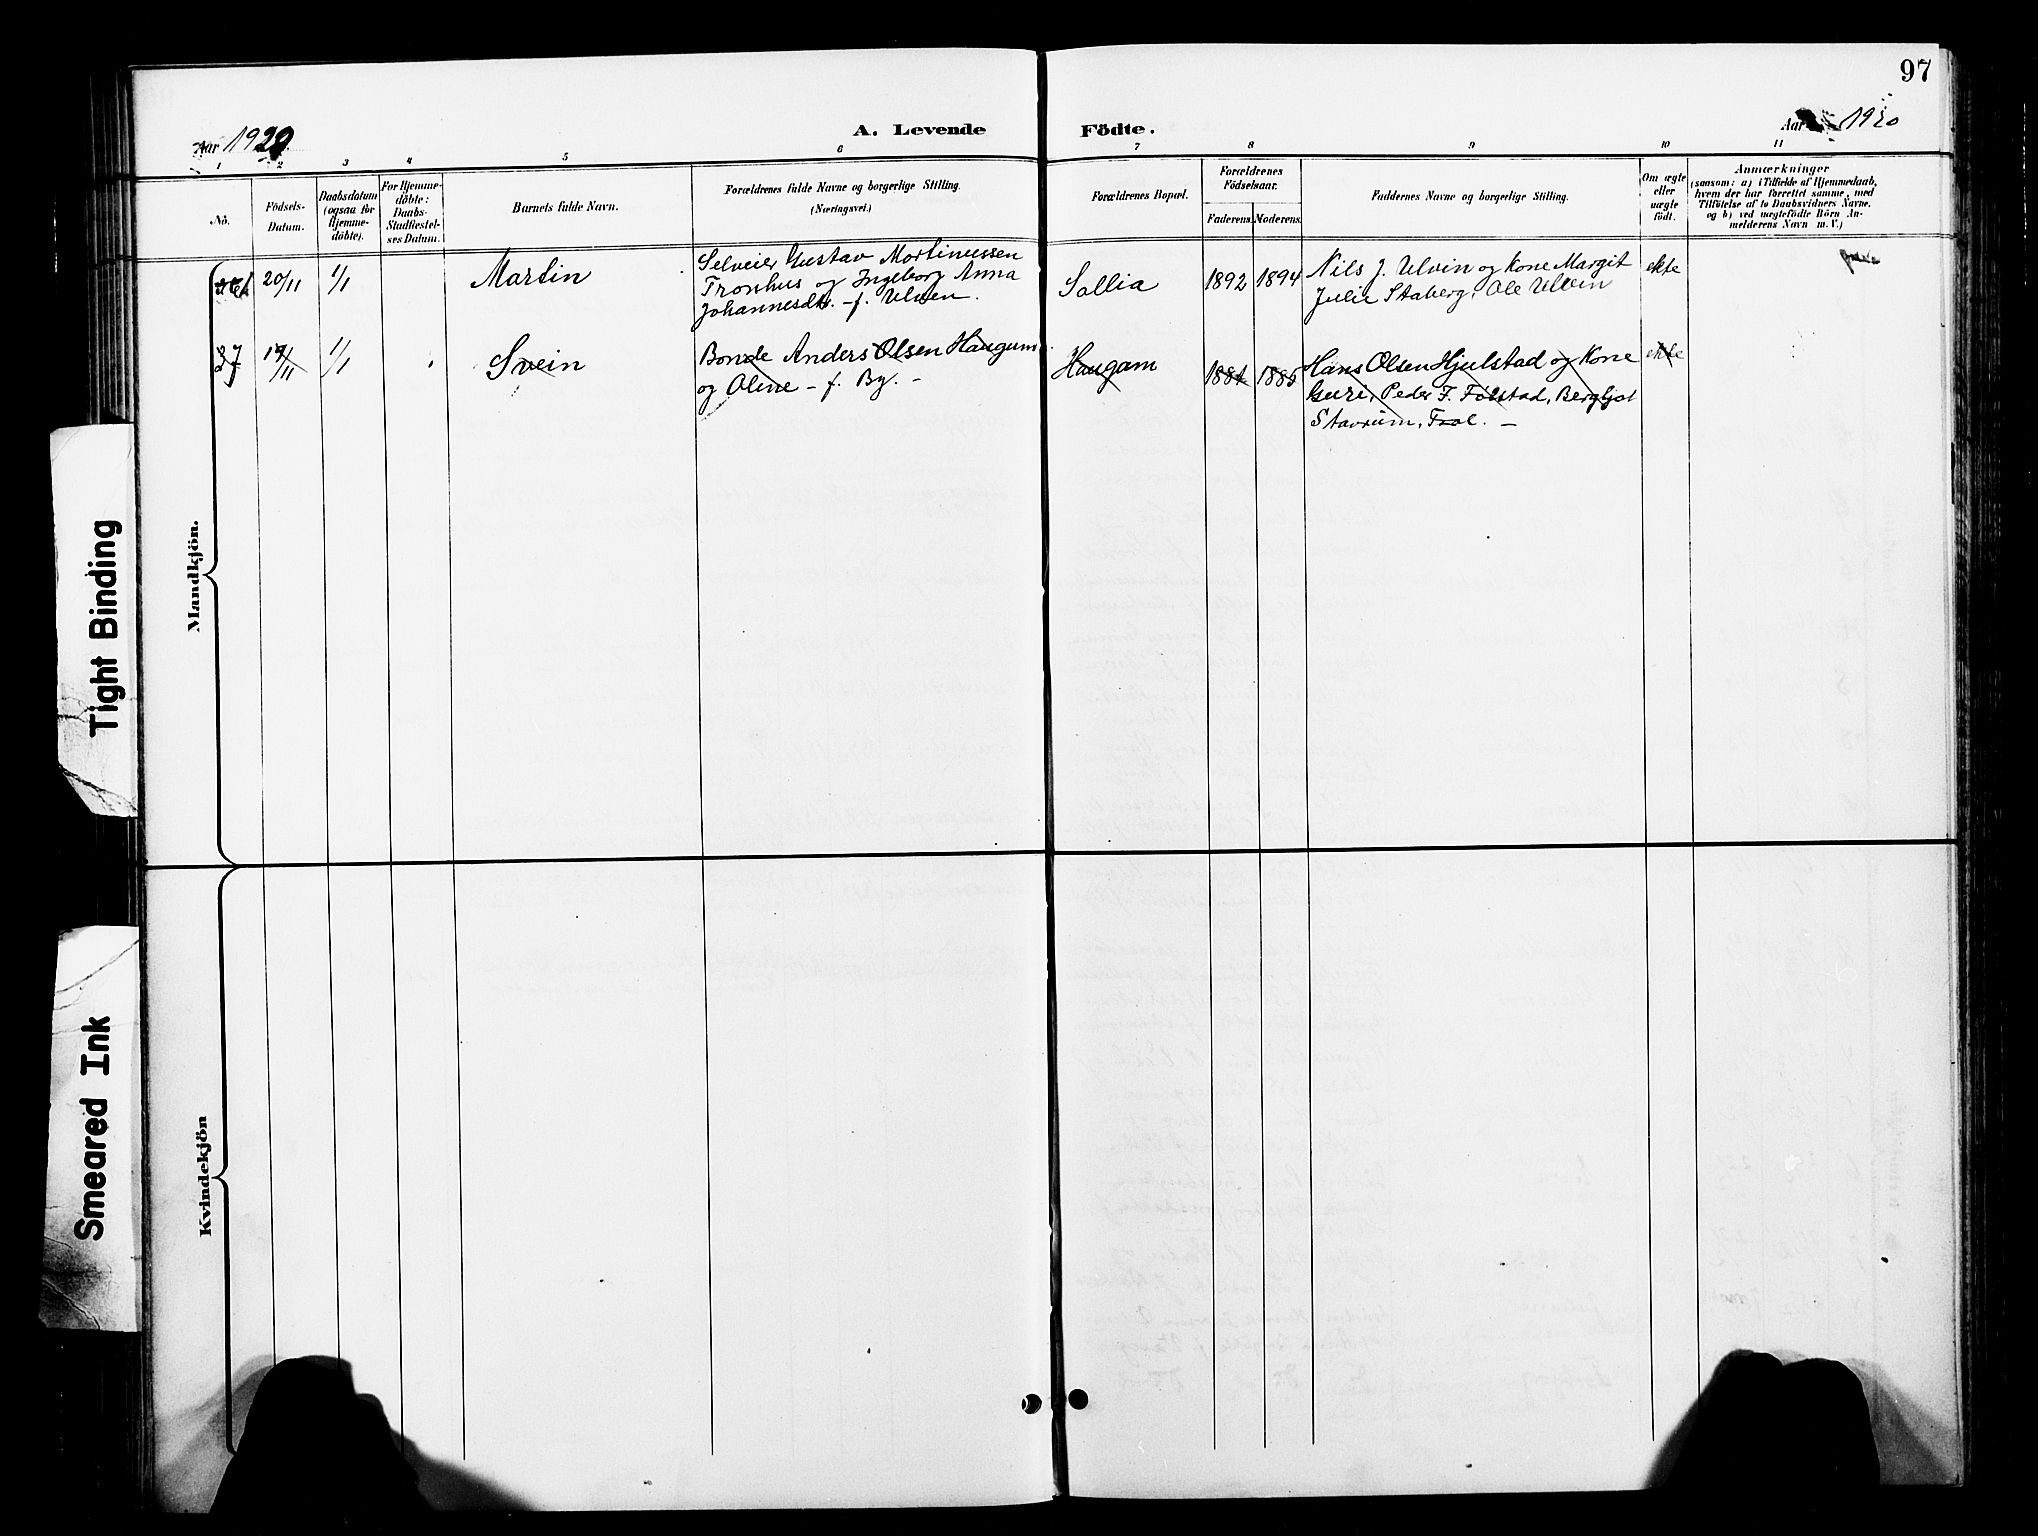 97
Aar 1920
A. Levende
Födte.
Aar 1920
1 2 3 4 5 6 7 8 9 10 11
No.
Födsels-
Datum.
Daabsdatum
(ogsaa for
Hjemme-
döbte).
For Hjemme-
döbte:
Daabs-
Stadfæstel-
ses Datum.
Barnets fulde Navn.
Forældrenes fulde Navne og borgerlige Stilling.
(Næringsvei.)
Forældrenes Bopæl.
Forældrenes
Födselsaar.
Faderens.
Moderens.
Faddernes Navne og borgerlige Stilling.
Om ægte
eller
uægte
födt.
Anmærkninger
(saasom: a) i Tilfælde af Hjemmedaab,
hvem der har forrettet samme, med
Tilföielse af to Daabsvidners Navne,
og b) ved uægtefödte Börn An-
melderens Navn m. V.)
Mandkjön.
20/11 1/1 Martin
Selveier Gustav Martinussen
Tronhus og Ingeborg Anna
Johannesdtr. - f. Ulven.
Sollia 1892 1894
Nils J. Ulvin og Kone Margit
Julie Staberg, Ole Ulvin
ekte
37 19/11 1/1 Svein
Bonde Anders Olsen Haugum
og Oline - f. By. -
Haugam 1881 1885
Hans Olsen Hjulstad og Kone
Guri, Peder J. Følstad, Bergljot
Stavrum, Frol. -
ekte
Kvindekjön
Tight Binding
Smeared Ink